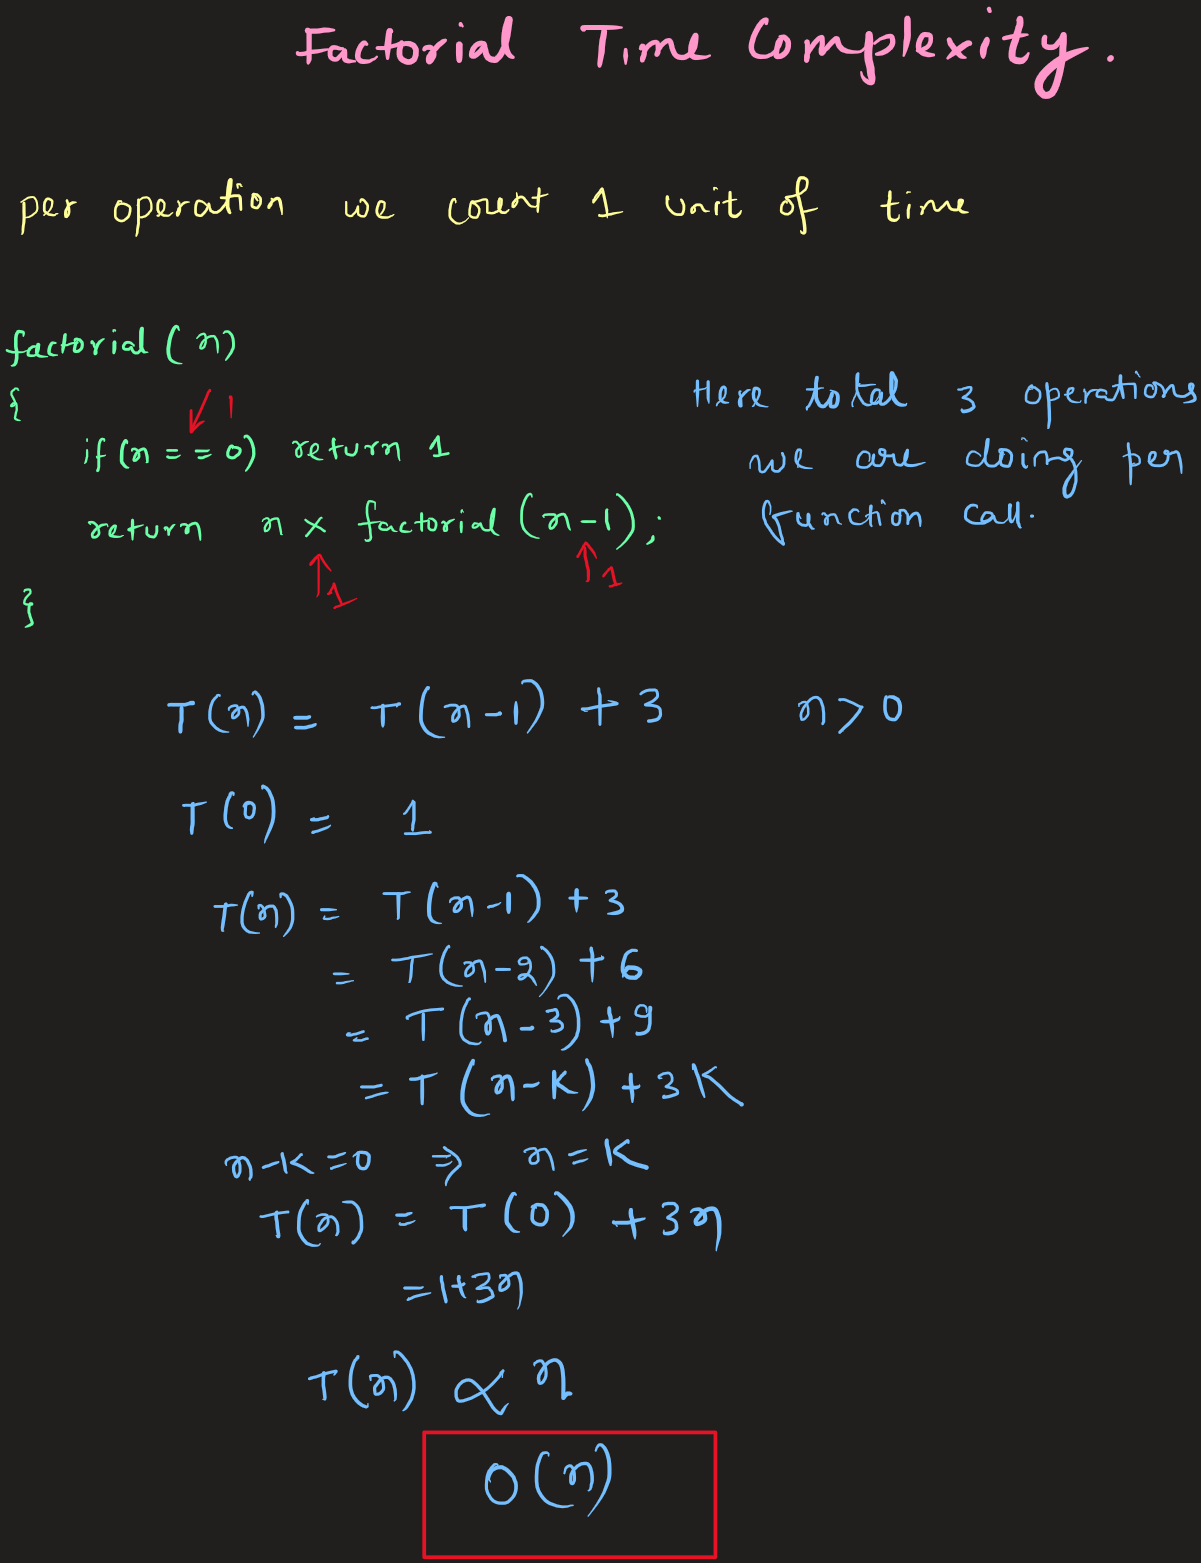 Factorial Time Complexity.
per operation we count 1 unit of time
factorial (n)
{
1
if (n == 0) return 1
return n × factorial (n-1);
1 1
}
Here total 3 operations
we are doing per
function call.
T(n) = T(n-1) + 3 n > 0
T(0) = 1
T(n) = T(n-1) + 3
= T(n-2) + 6
= T(n-3) + 9
= T(n-K) + 3K
n-K=0 ⇒ n=K
T(n) = T(0) + 3n
=1+3n
T(n) ∝ n
O(n)